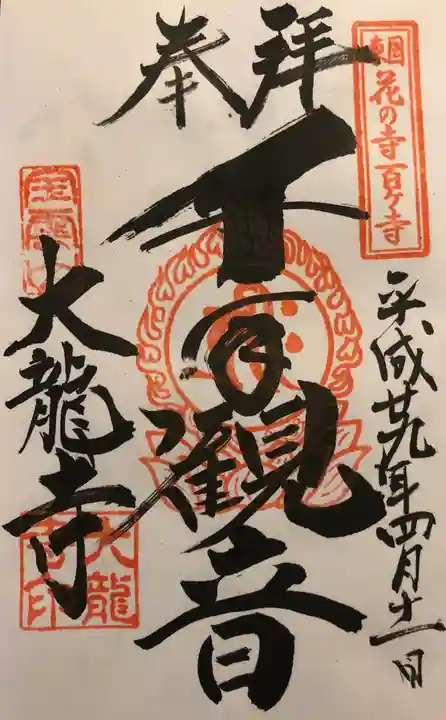 東国花の寺百ヶ寺
奉拝
平成廿九年四月十一日
千手観音
大龍寺
大龍
寺印